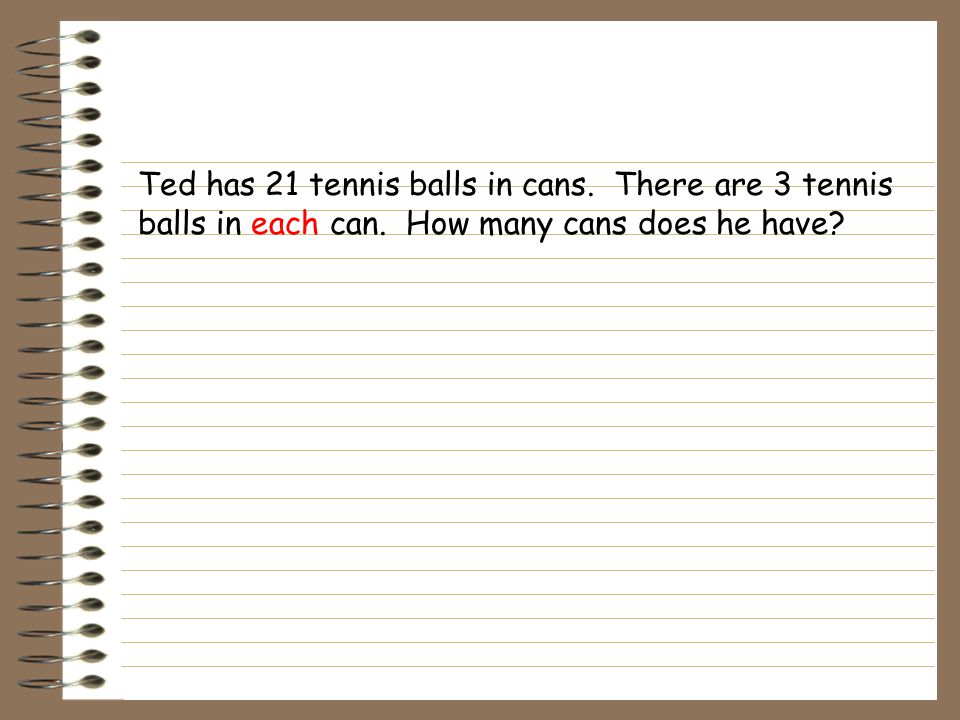 Ted has 21 tennis balls in cans.  There are 3 tennis
balls in each can.  How many cans does he have?